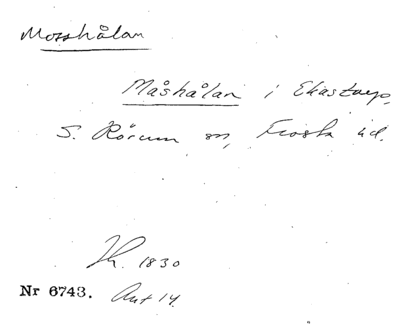 Mosshålan
Måshålan i Ekastorp,
S. Rörum sn, Frosta hd.
1830
Nr 6743. Avt 14